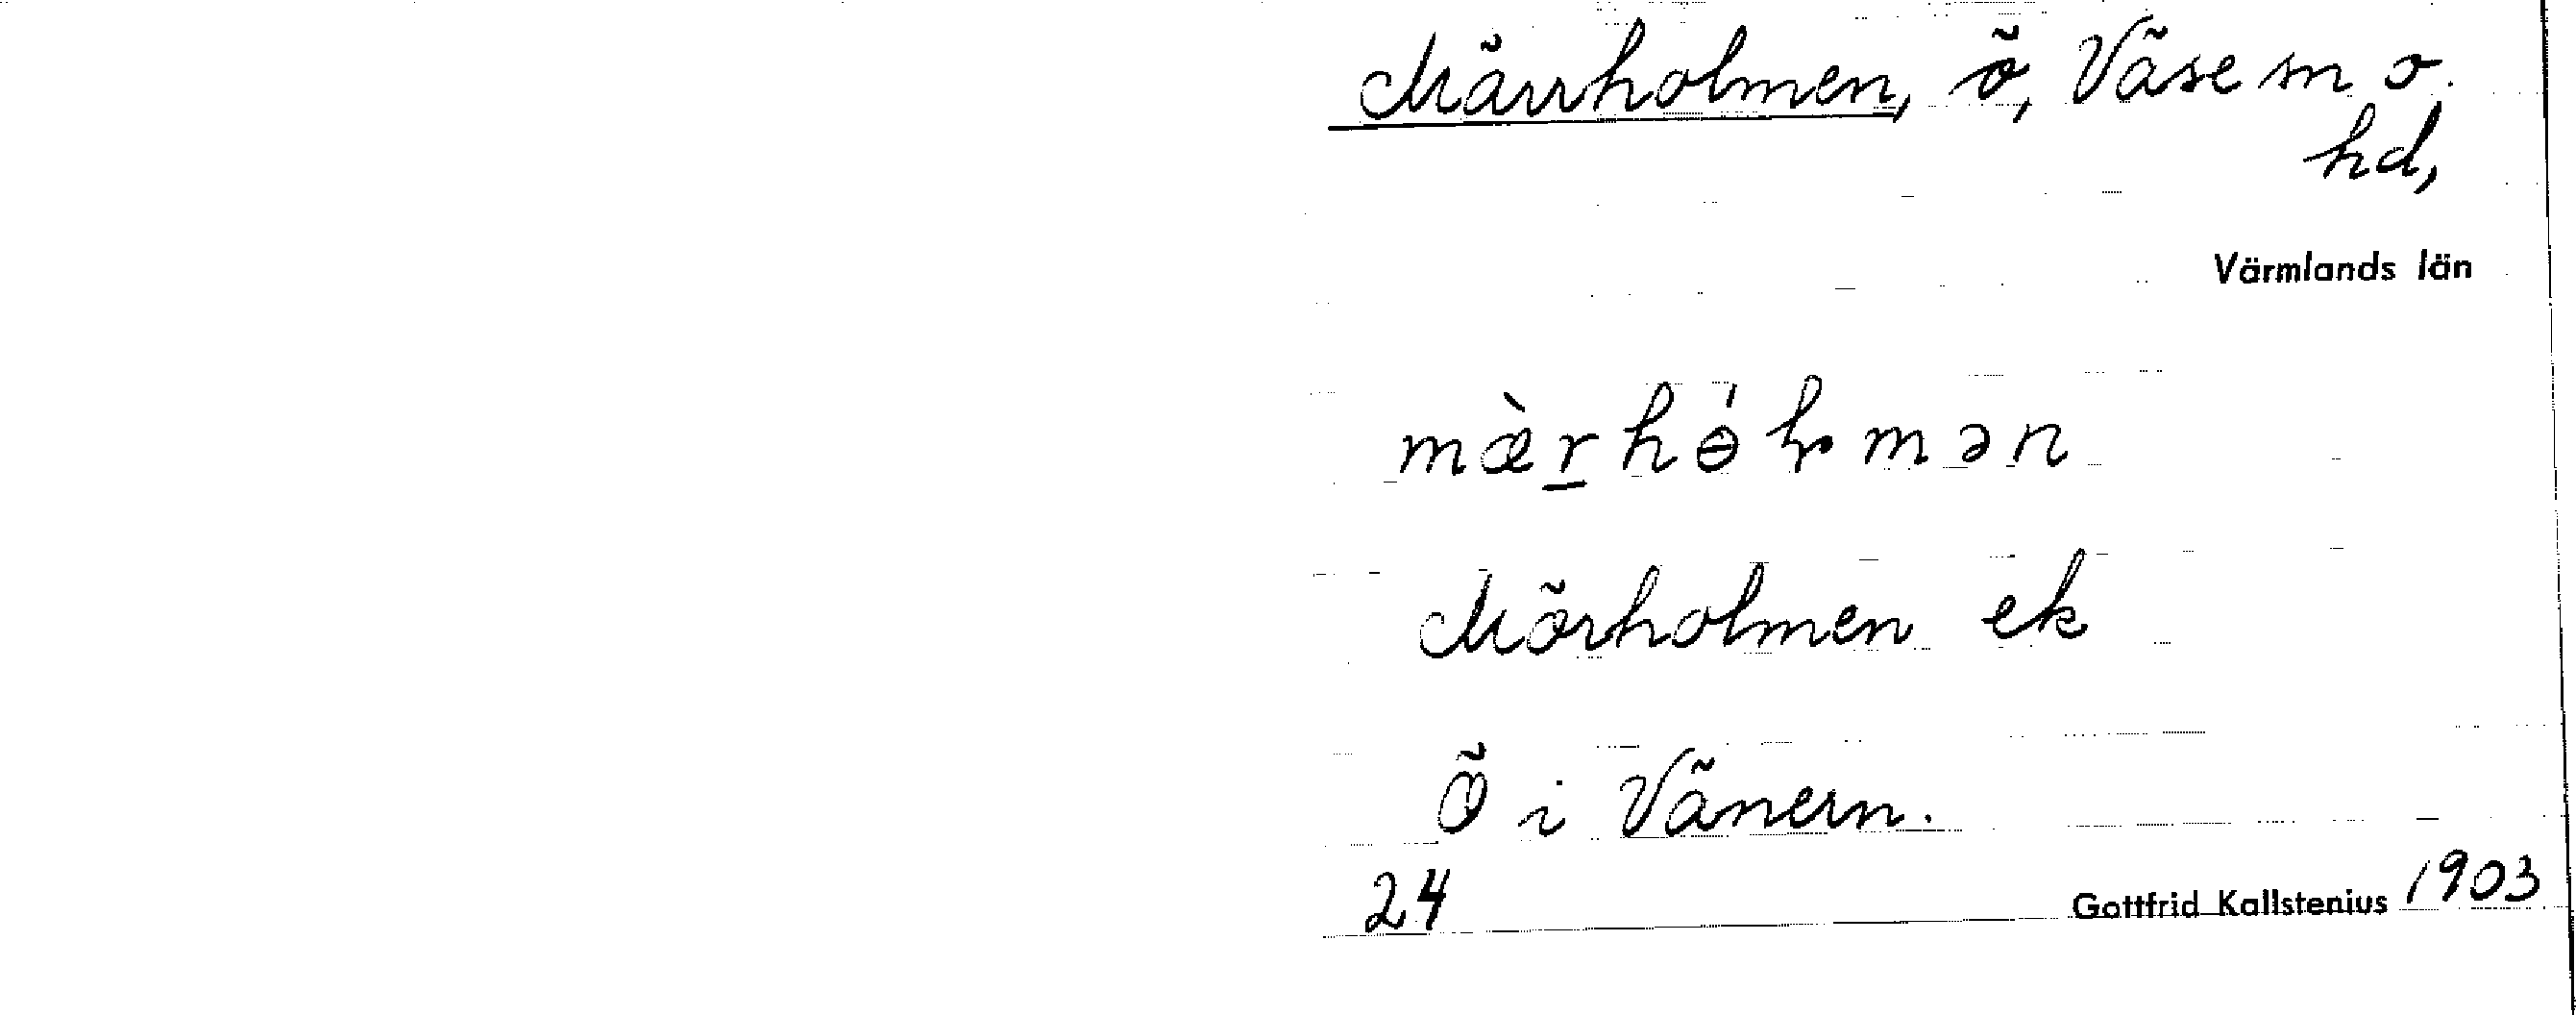 Märrholmen, ö, Väse sn o.
hd,
Värmlands län
mæ̀r̲hɵ́ɽmən
Mörholmen ek
Ö i Vänern.
24 Gottfrid Kallstenius 1903